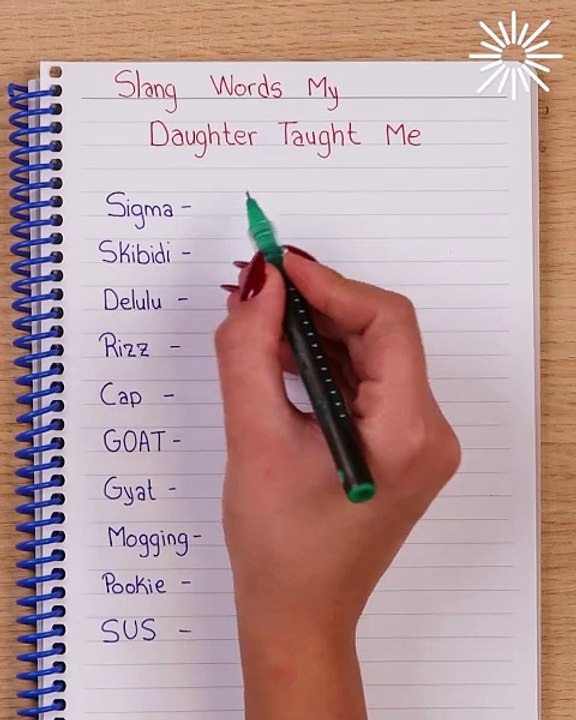 Slang Words My
Daughter Taught Me
Sigma -
Skibidi -
Delulu -
Rizz -
Cap -
GOAT -
Gyat -
Mogging -
Pookie -
SUS -